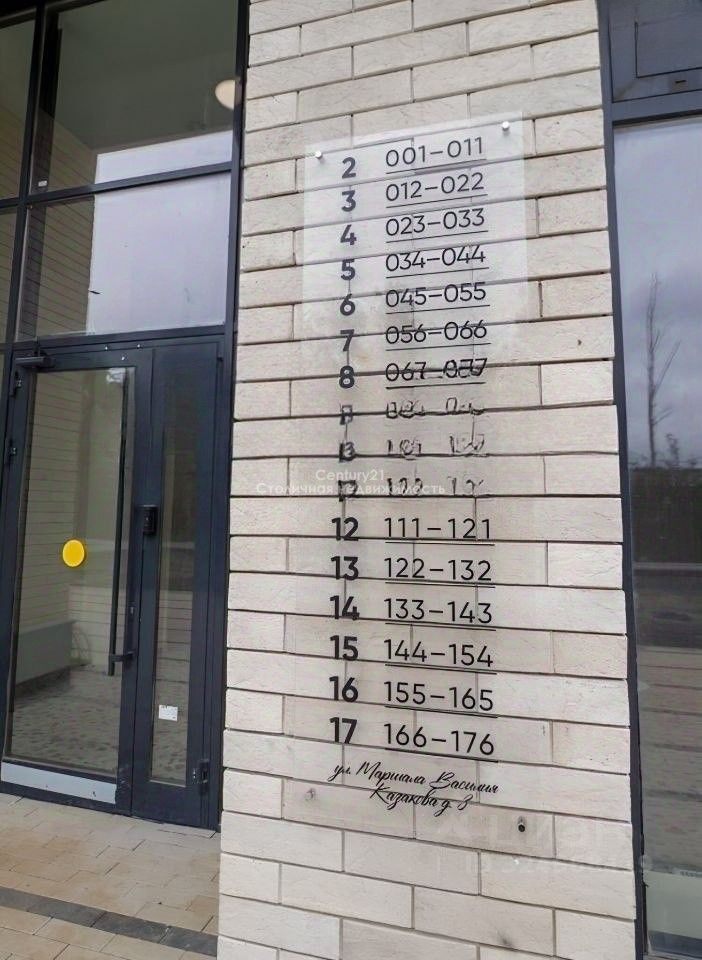 2 001–011
3 012–022
4 023–033
5 034–044
6 045–055
7 056–066
8 067–077
Century21
Столичная недвижимость
12 111–121
13 122–132
14 133–143
15 144–154
16 155–165
17 166–176
ул. Маршала Василия
Казакова д. 3